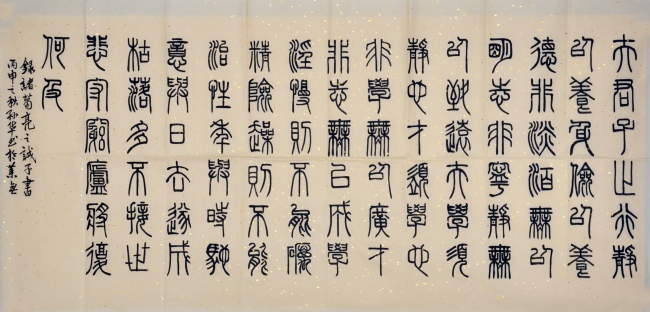 夫君子之行靜
以養身儉以養
德非淡泊無以
明志非寧靜無
以致遠夫學須
靜也才須學也
非學無以廣才
非志無以成學
淫慢則不能勵
精險躁則不能
治性年與時馳
意與日去遂成
枯落多不接世
悲守窮廬將復
何及
錄諸葛亮之誡子書
丙申之秋